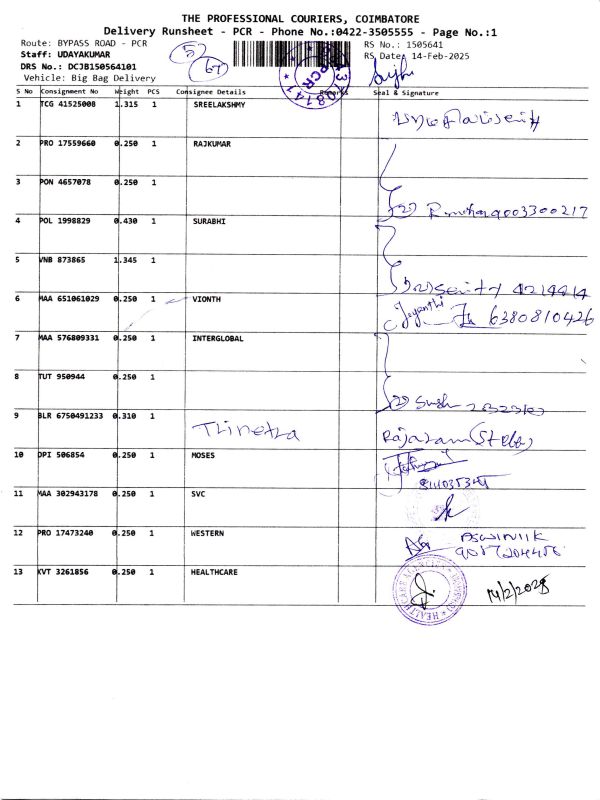 THE PROFESSIONAL COURIERS, COIMBATORE
Delivery Runsheet - PCR - Phone No.:0422-3505555 - Page No.:1
Route: BYPASS ROAD - PCR
RS No.: 1505641
Staff: UDAYAKUMAR
RS Date: 14-Feb-2025
DRS No.: DCJB150564101
Vehicle: Big Bag Delivery
57
67
PCR
S No Consignment No Weight PCS Consignee Details Remarks Seal & Signature
1 TCG 41525008 1.315 1 SREELAKSHMY
2 PRO 17559660 0.250 1 RAJKUMAR
3 PON 4657078 0.250 1
4 POL 1998829 0.430 1 SURABHI
5 VNB 873865 1.345 1
6 MAA 651061029 0.250 1 VIONTH Jeyanthi 6380810426
7 MAA 576809331 0.250 1 INTERGLOBAL
8 TUT 950944 0.250 1
9 BLR 6750491233 0.310 1 Trinetra Rajaram
10 DPI 506854 0.250 1 MOSES
11 MAA 302943178 0.250 1 SVC
12 PRO 17473240 0.250 1 WESTERN
13 KVT 3261856 0.250 1 HEALTHCARE 14/2/2025